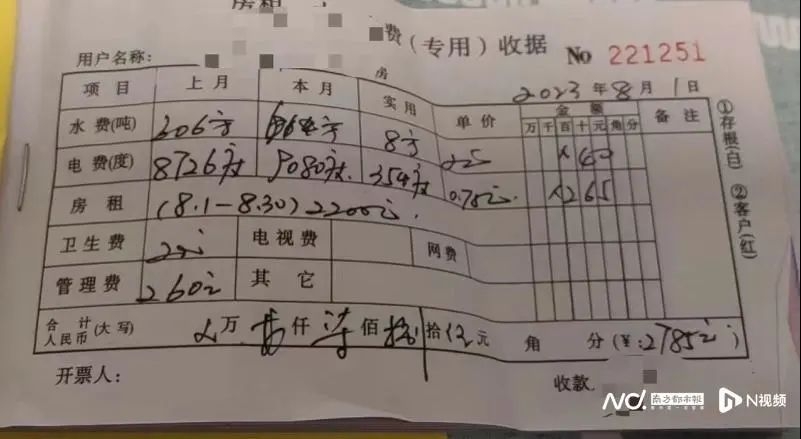 房租
费(专用)收据 No 221251
用户名称:
房 2023年8月1日
项目 上月 本月 实用 单价 金额 备注
万千百十元角分
水费(吨) 606方 8方
电费(度) 8726度 9080度 354度 0.75元 ×265
房租 (8.1-8.30) 2200元
卫生费 20元 电视费 网费
管理费 260元 其它
合计人民币(大写) 万 仟 柒佰 捌拾 伍元 角 分(¥:2785元)
开票人: 收款
①存根(白) ②客户(红)
N 南方都市报 N视频